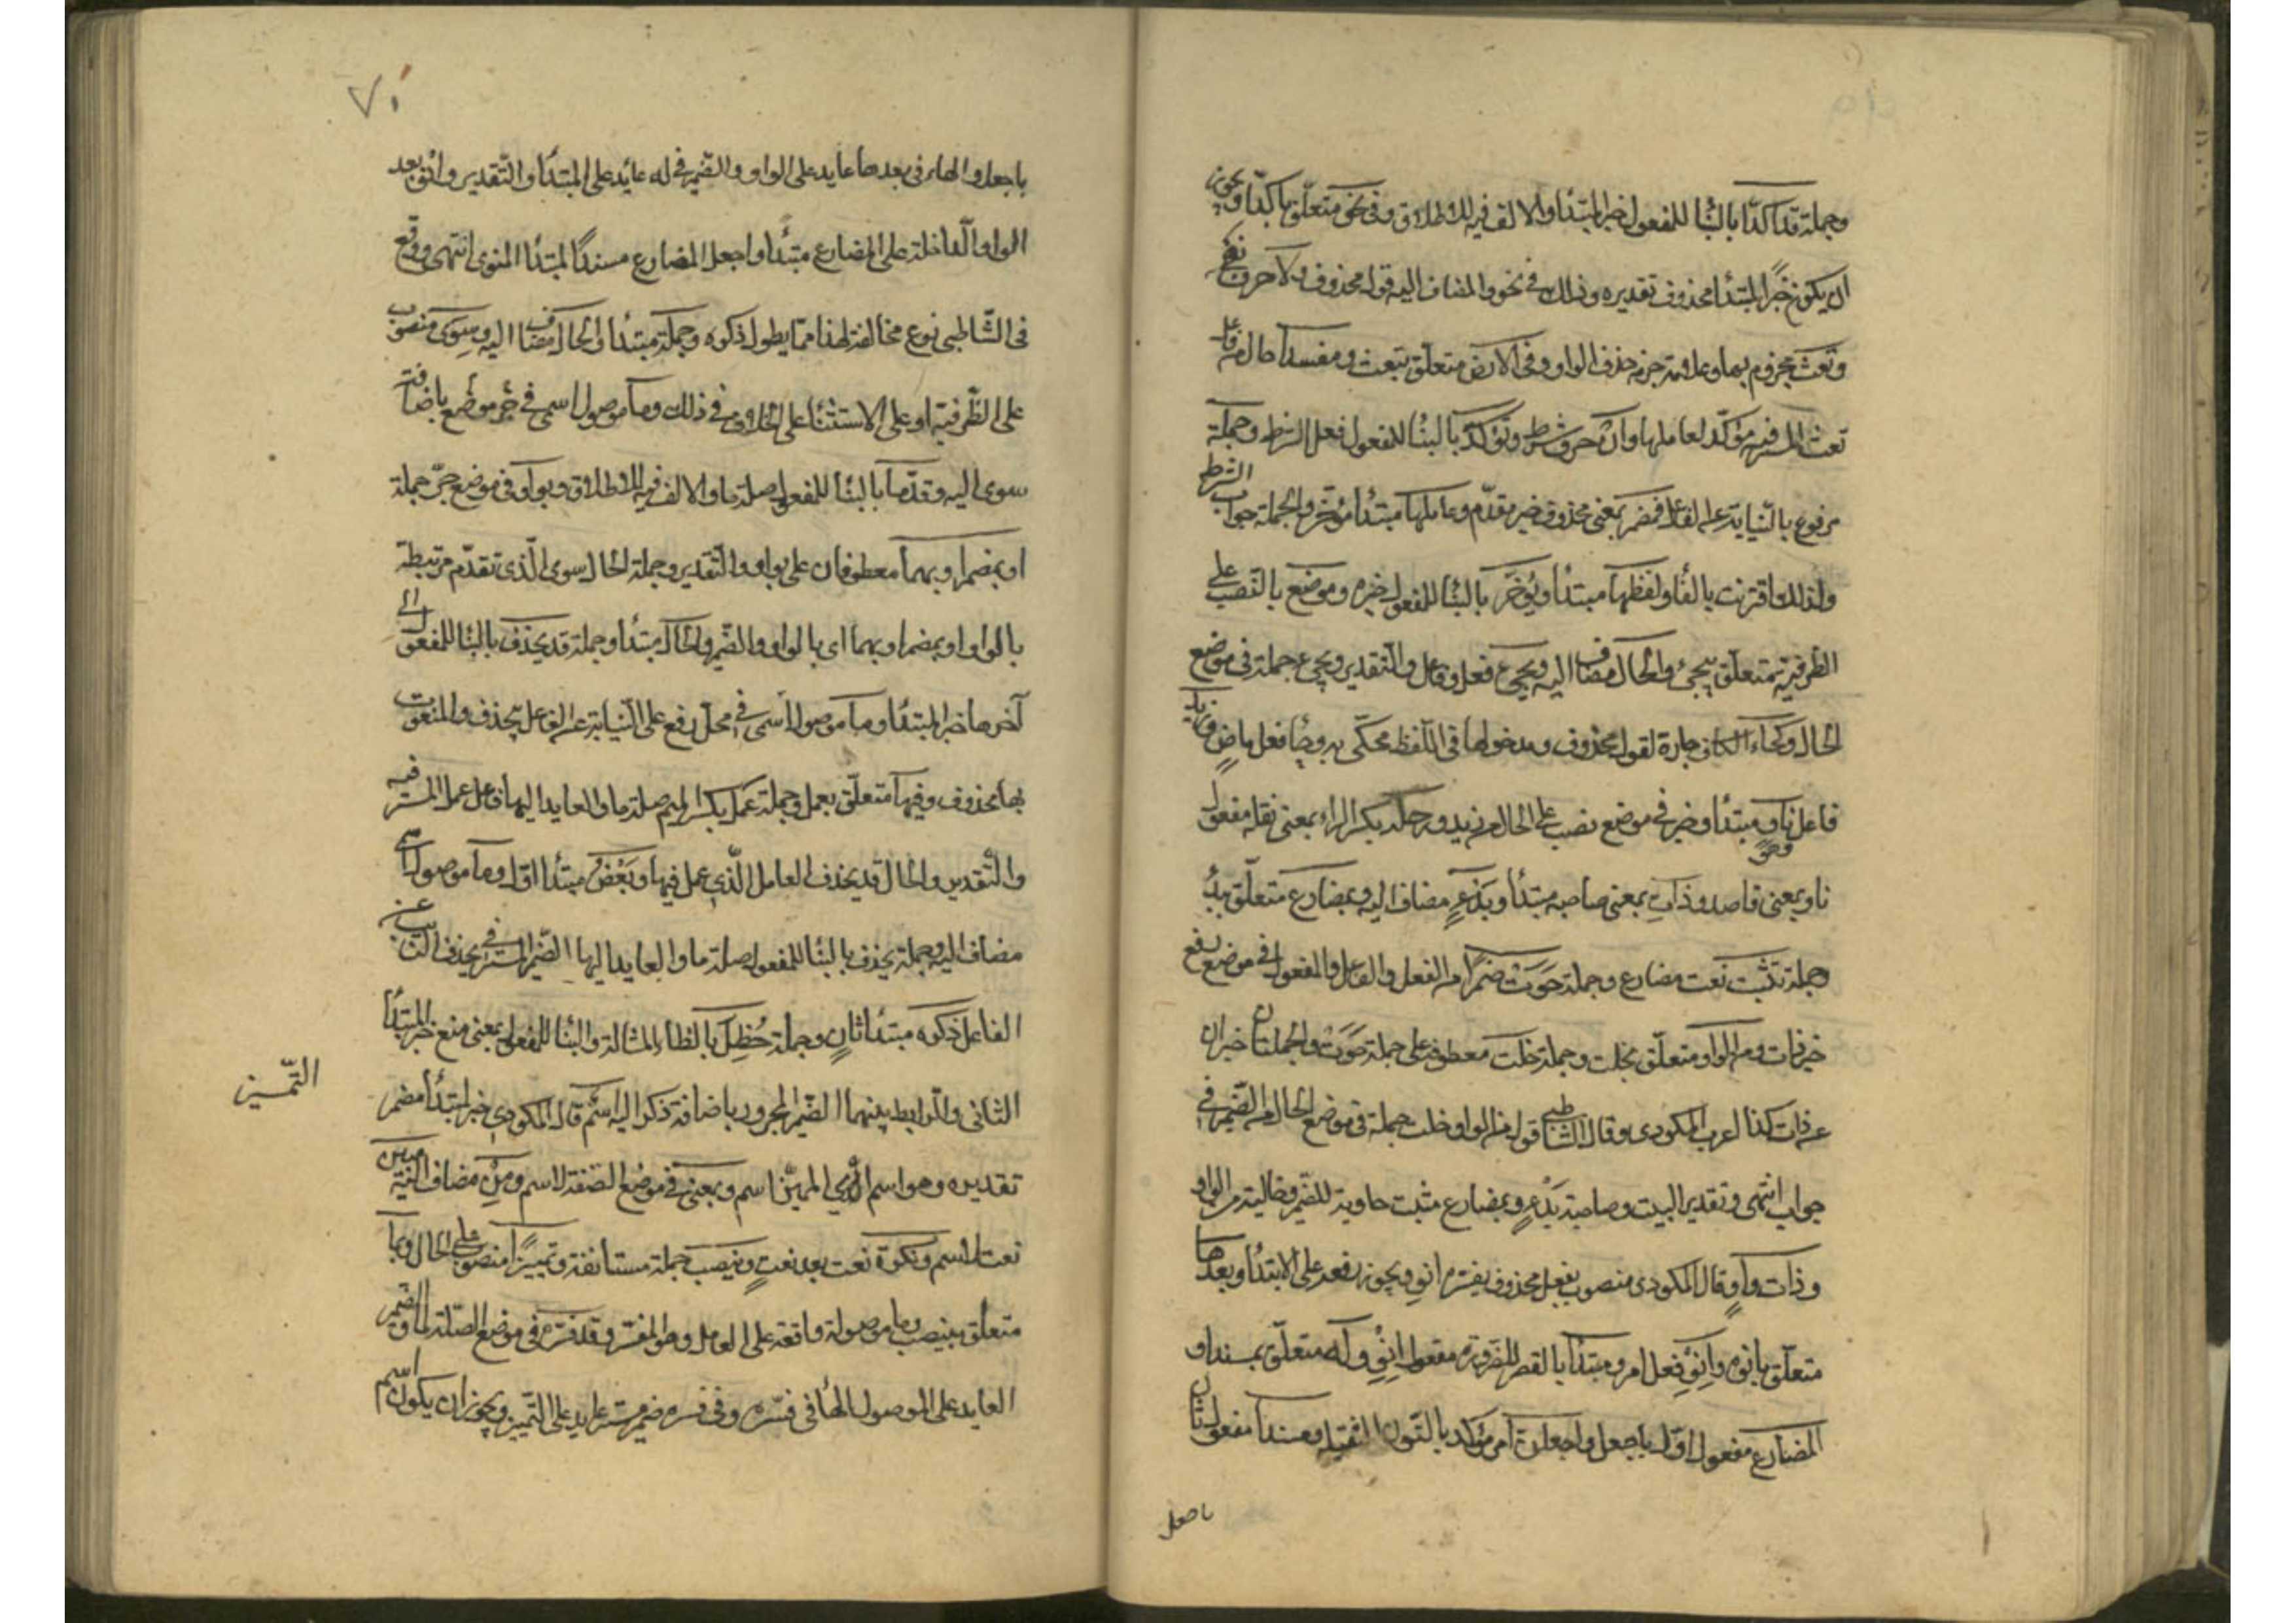 وجملة قد اكدّا بالبنا للمفعول خبر المبتدا والالف فيه للاطلاق وفي نحو متعلّق باكدّا ويجوز
ان يكون خبرًا لمبتدا محذوف تقديره وذلك في نحو والمضاف اليه قوله محذوف ولا حرف نهى
وتعث مجزوم بها وعلامة جزمه حذف الواو وفي الارض متعلّق بتعث ومفسدا حال من فاعل
تعث المستتر فيه مؤكّد لعاملها وان حرف شرط وتؤكد بالبنا للمفعول فعل الشرط وجملة
مرفوع بالنيابة عن الفاعل فمضمر بمعنى محذوف خبر مقدّم وعاملها مبتدأ مؤخر والجملة جواب الشرط
ولذلك اقترنت بالفا ولفظها مبتدا ويؤخر بالبنا للمفعول خبره وموضع بالنصب على
الظرفية متعلّق بيجئ والحال مضاف اليه ويجئ فعل وفاعل والتقدير ويجئ جملة في موضع
الحال وكجاء الكاف جارة لقول محذوف ومدخولها في اللفظ محكى به وجا فعل ماضٍ وزيد
فاعل وهو مبتدأ وخبر في موضع نصب على الحال من زيد ورحله بكسر الراء بمعنى نقله مفعول
ناو بمعنى قاصد وذات بمعنى صاحبه مبتدأ وبدءٍ مضاف اليه وبمضارع متعلّق ببدء
وجملة ثبت نعت مضارع وجملة حوت ضميرا من الفعل والفاعل والمفعول في موضع رفع
خبر ذات ومن الواو متعلّق بخلت وجملة خلت معطوفة على جملة حوت والجملتان خبران
عن ذات كذا اعرب المكودى وقال الشاطبي قوله من الواو خلت جملة في موضع الحال من الضمير في
جواب انتهى وتقدير البيت وصاحبة بدءٍ بمضارع مثبت حاوية للضمير وخالية من الواو
وذات واوٍ قال المكودى منصوب بفعل محذوف يفسّره انو ويجوز رفعه على الابتدا وبعدها
متعلّق بانو وانوِ فعل امر ومبتدا بالقصر للضرورة مفعول انوِ وله متعلّق بمسندا و
المضارع مفعول اوّل باجعل واجعلن امر مؤكد بالنون الثقيلة ومسندا مفعول ثان
باجعل
٧٠
باجعل والهاء في بعدها عايد على الواو والضمير في له عائد على المبتدأ والتّقدير وانو بعد
الواو الدّاخلة على المضارع مبتدأ واجعل المضارع مسندًا لمبتدا المنوى انتهى ووقع
في الشّاطبى نوع مخالفة لهذا مما يطول ذكره وجملة مبتدأ والحال مضاف اليه وسوى منصوب
على الظّرفية او على الاستثنا على الخلاف في ذلك وما موصول اسمى في جر موضع باضافة
سوى اليه وقدّما بالبنا للمفعول صلة ما والالف فيه للاطلاق وبواو في موضع خبر جملة
او بمضمر او بهما معطوفان على بواو والتقدير وجملة الحال سوى الّذى تقدّم مرتبطة
بالواو او بمضمر او بهما اى بالواو والضّمير والحال مبتدأ وجملة قد يحذف بالبنا للمفعول الى
آخرها خبر المبتدا وما موصول اسمى في محل رفع على النيابة عن الفاعل بيحذف والمنعوت
بها محذوف وفيها متعلّق بعمل وجملة عمل بكسر الميم صلة ما والعايد اليها فاعل عمل المستتر فيه
والتّقدير والحال قد يحذف العامل الّذى عمل فيها وبعض مبتدا اوّل وما موصول اسمى
مضاف اليه وجملة يحذف بالبنا للمفعول صلة ما والعايد اليها الضمير المستتر في يحذف النائب عن
الفاعل ذكره مبتدأ ثانٍ وجملة حُظِل بالظاء المشالة والبنا للمفعول بمعنى منع خبر المبتدأ
الثاني والرابط بينهما الضمير المجرور باضافة ذكر اليه
التّمييز
اسم قال المكودى خبر لمبتدأ مضمر
تقديره وهو اسم اى المميّز اسم وبمعنى في موضع الصفة لاسم ومِن مضاف اليه مبين
نعت لاسم ونكرة نعت بعد نعتٍ وينصب جملة مستأنفة وتمييزًا منصوب على الحال وبما
متعلّق بينصب وما موصولة واقعة على العامل وهو المفسّر وقد فسّره في موضع الصّلة لما والضمير
العايد على الموصول الها في فسّره وفي فسره ضمير مستتر عايد على التّمييز ويجوز ان يكون اسم